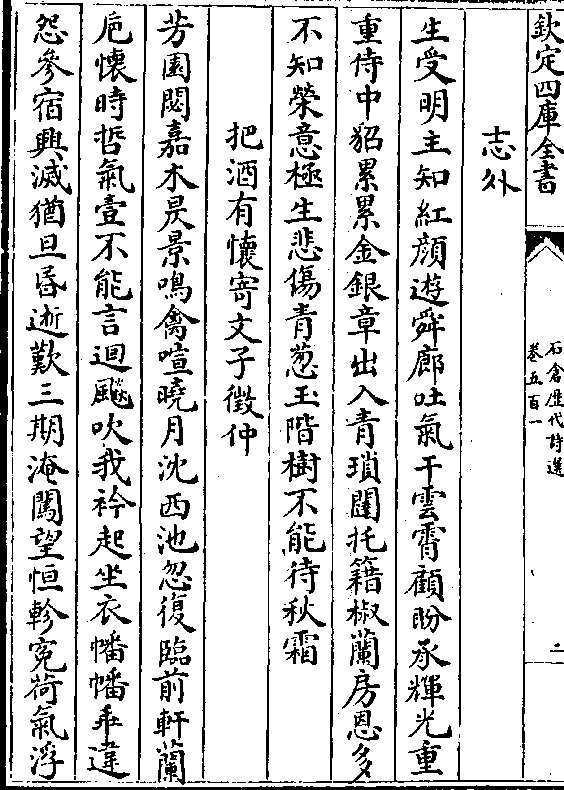 欽定四庫全書
石倉歷代詩選
卷五百一
二
志外
生受明主知紅顔遊舜廊吐氣干雲霄顧盼承輝光重
重侍中貂累累金銀章出入青瑣闥托籍椒蘭房恩多
不知榮意極生悲傷青葱玉階樹不能待秋霜
把酒有懷寄文子徵仲
芳園閟嘉木昃景鳴禽喧曉月沈西池忽復臨前軒蘭
巵懷時哲氣壹不能言迴飈吹我衿起坐衣幡幡乖違
怨參宿興滅猶旦昏逝歎三期淹闊望恒軫寃荷氣浮